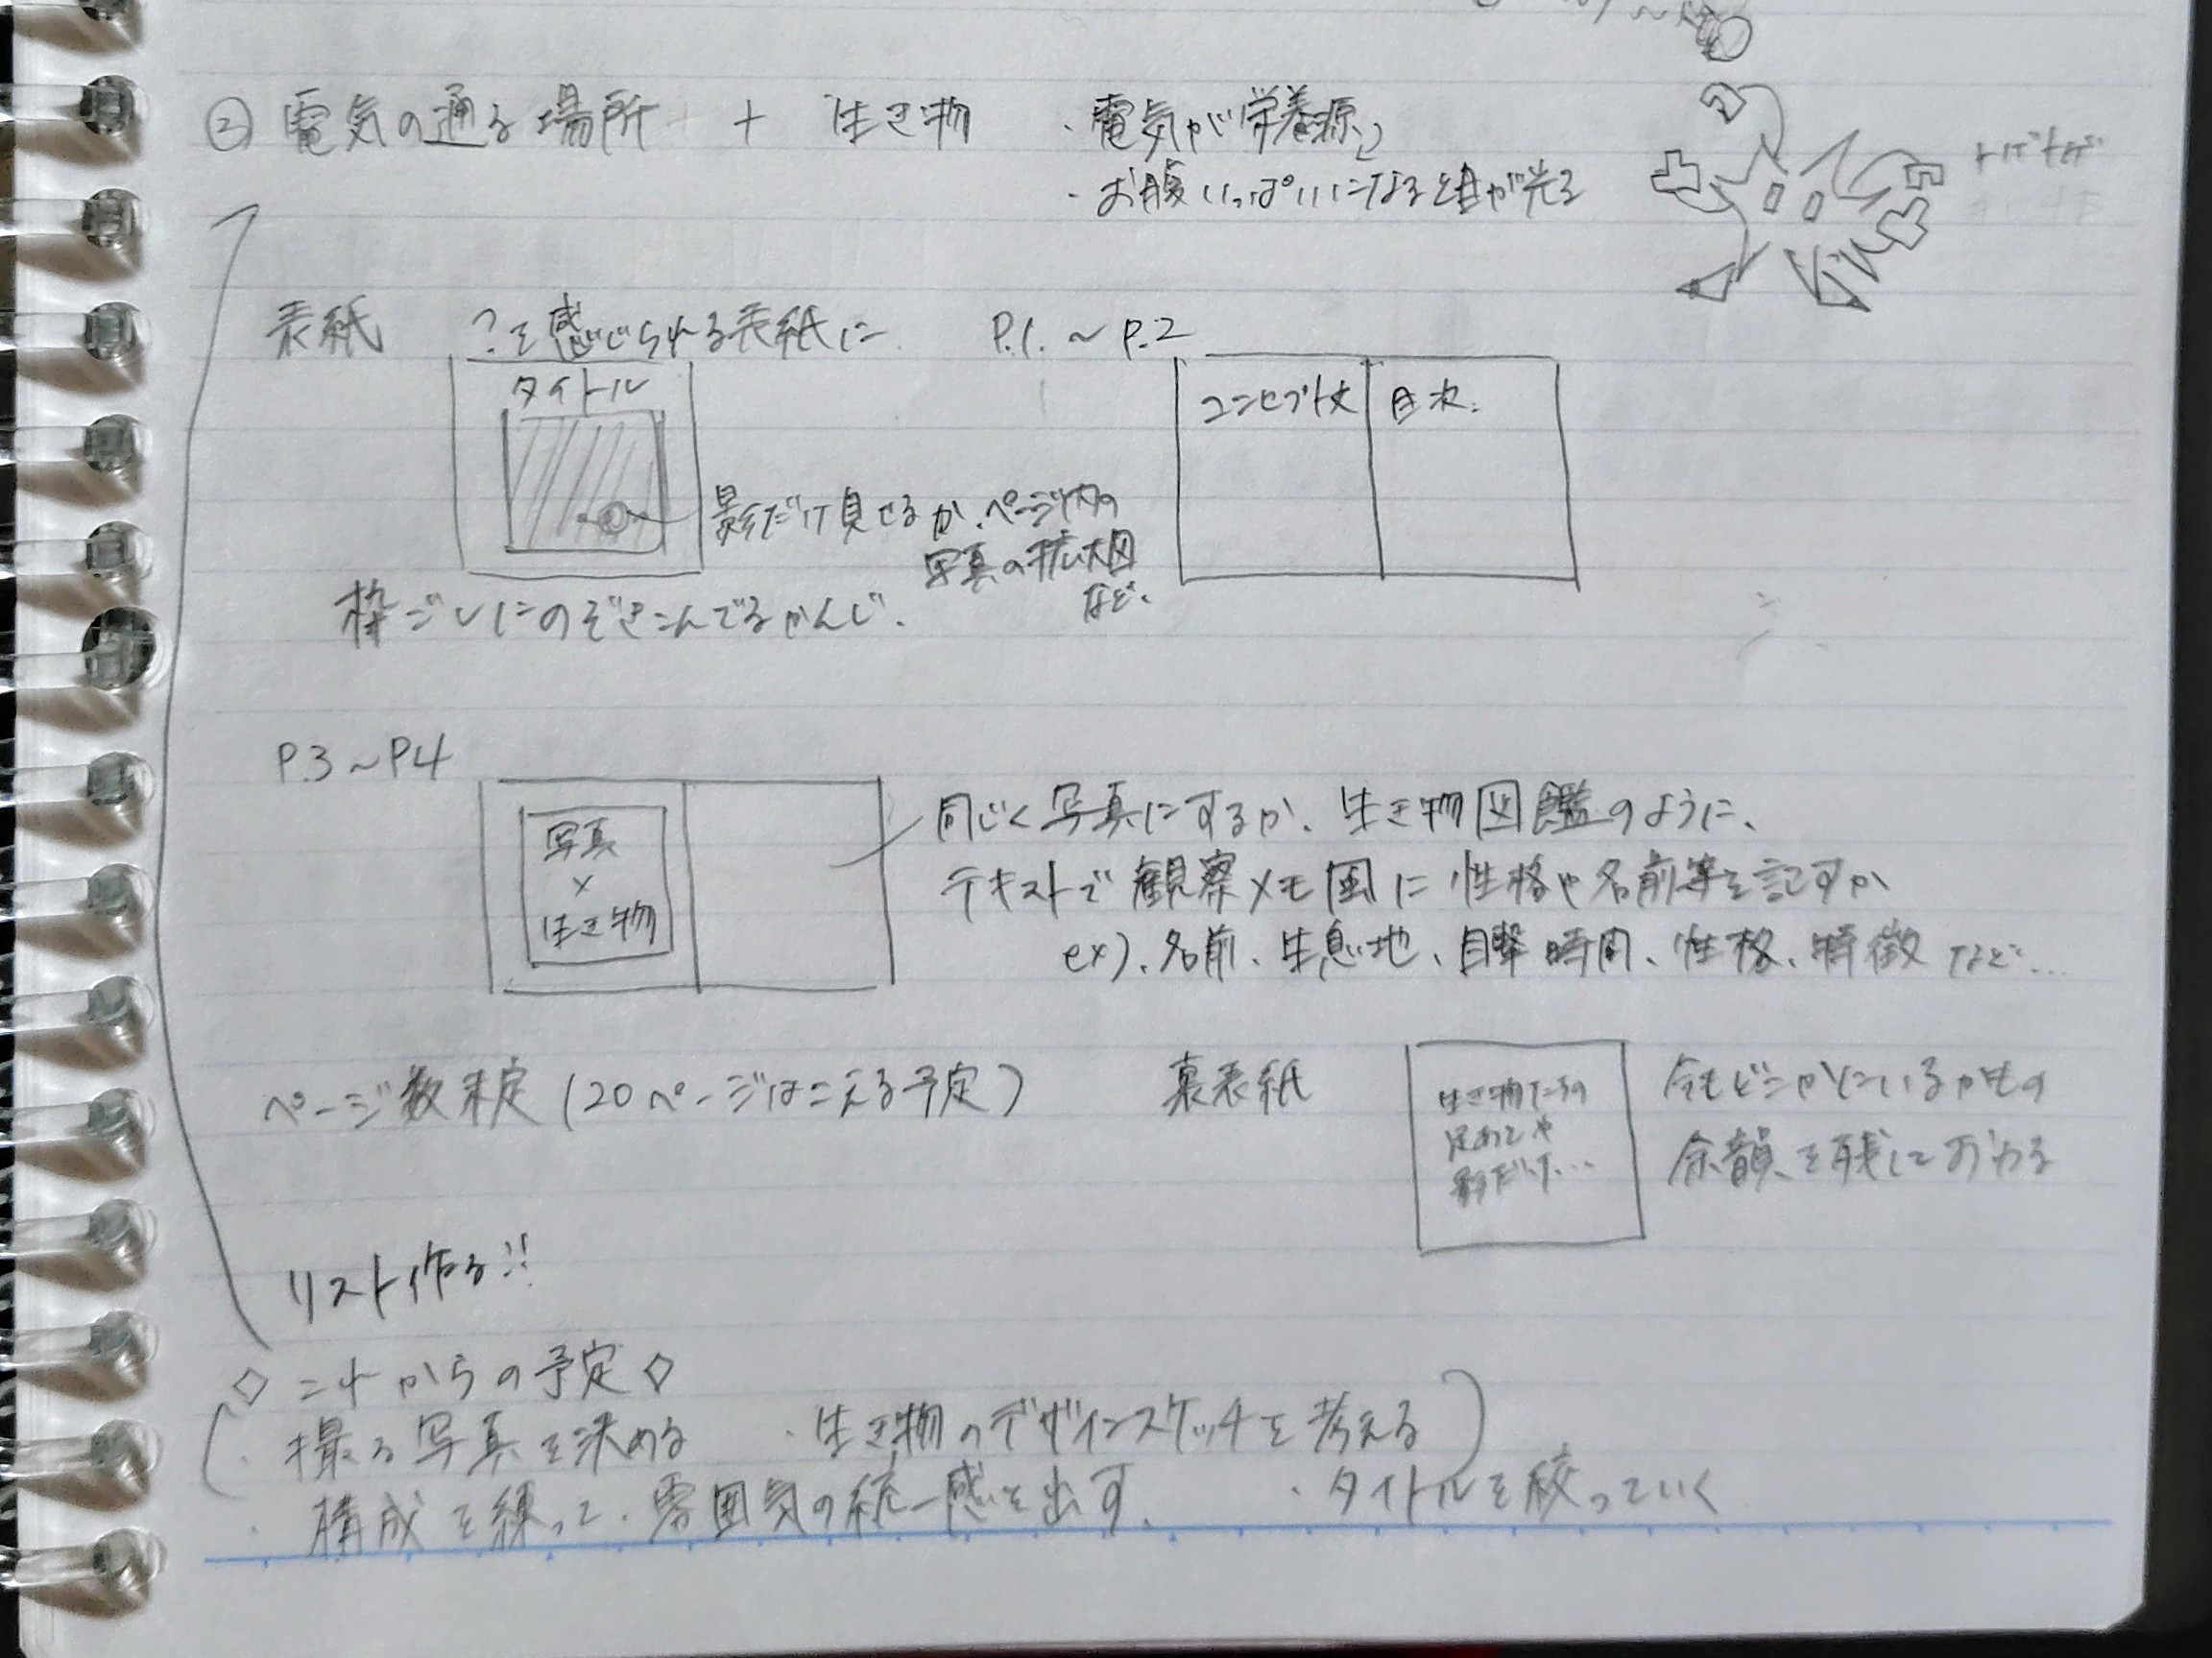 ② 電気の通る場所 + 生き物
・電気が栄養源
・お腹いっぱいになると目が光る
トゲトゲ
表紙 ?を感じられる表紙に
タイトル
影だけ見せるか、ページ内の
写真の拡大図
など、
枠ごしにのぞきこんでるかんじ.
P.1. ~ P.2
コンセプト文
目次.
P.3 ~ P4
写真
×
生き物
同じく写真にするか、生き物図鑑のように、
テキストで観察メモ風に性格や名前等を記すか
ex)、名前、生息地、目撃時間、性格、特徴 など…
ページ数未定 (20ページはこえる予定)
裏表紙
生き物たちの
足あとや
影だけ…
今もどこかにいるかもの
余韻を残しておわる
リスト作る!!
◇ これからの予定 ◇
・撮る写真を決める ・生き物のデザインスケッチを考える
・構成を練って、雰囲気の統一感を出す. ・タイトルを絞っていく